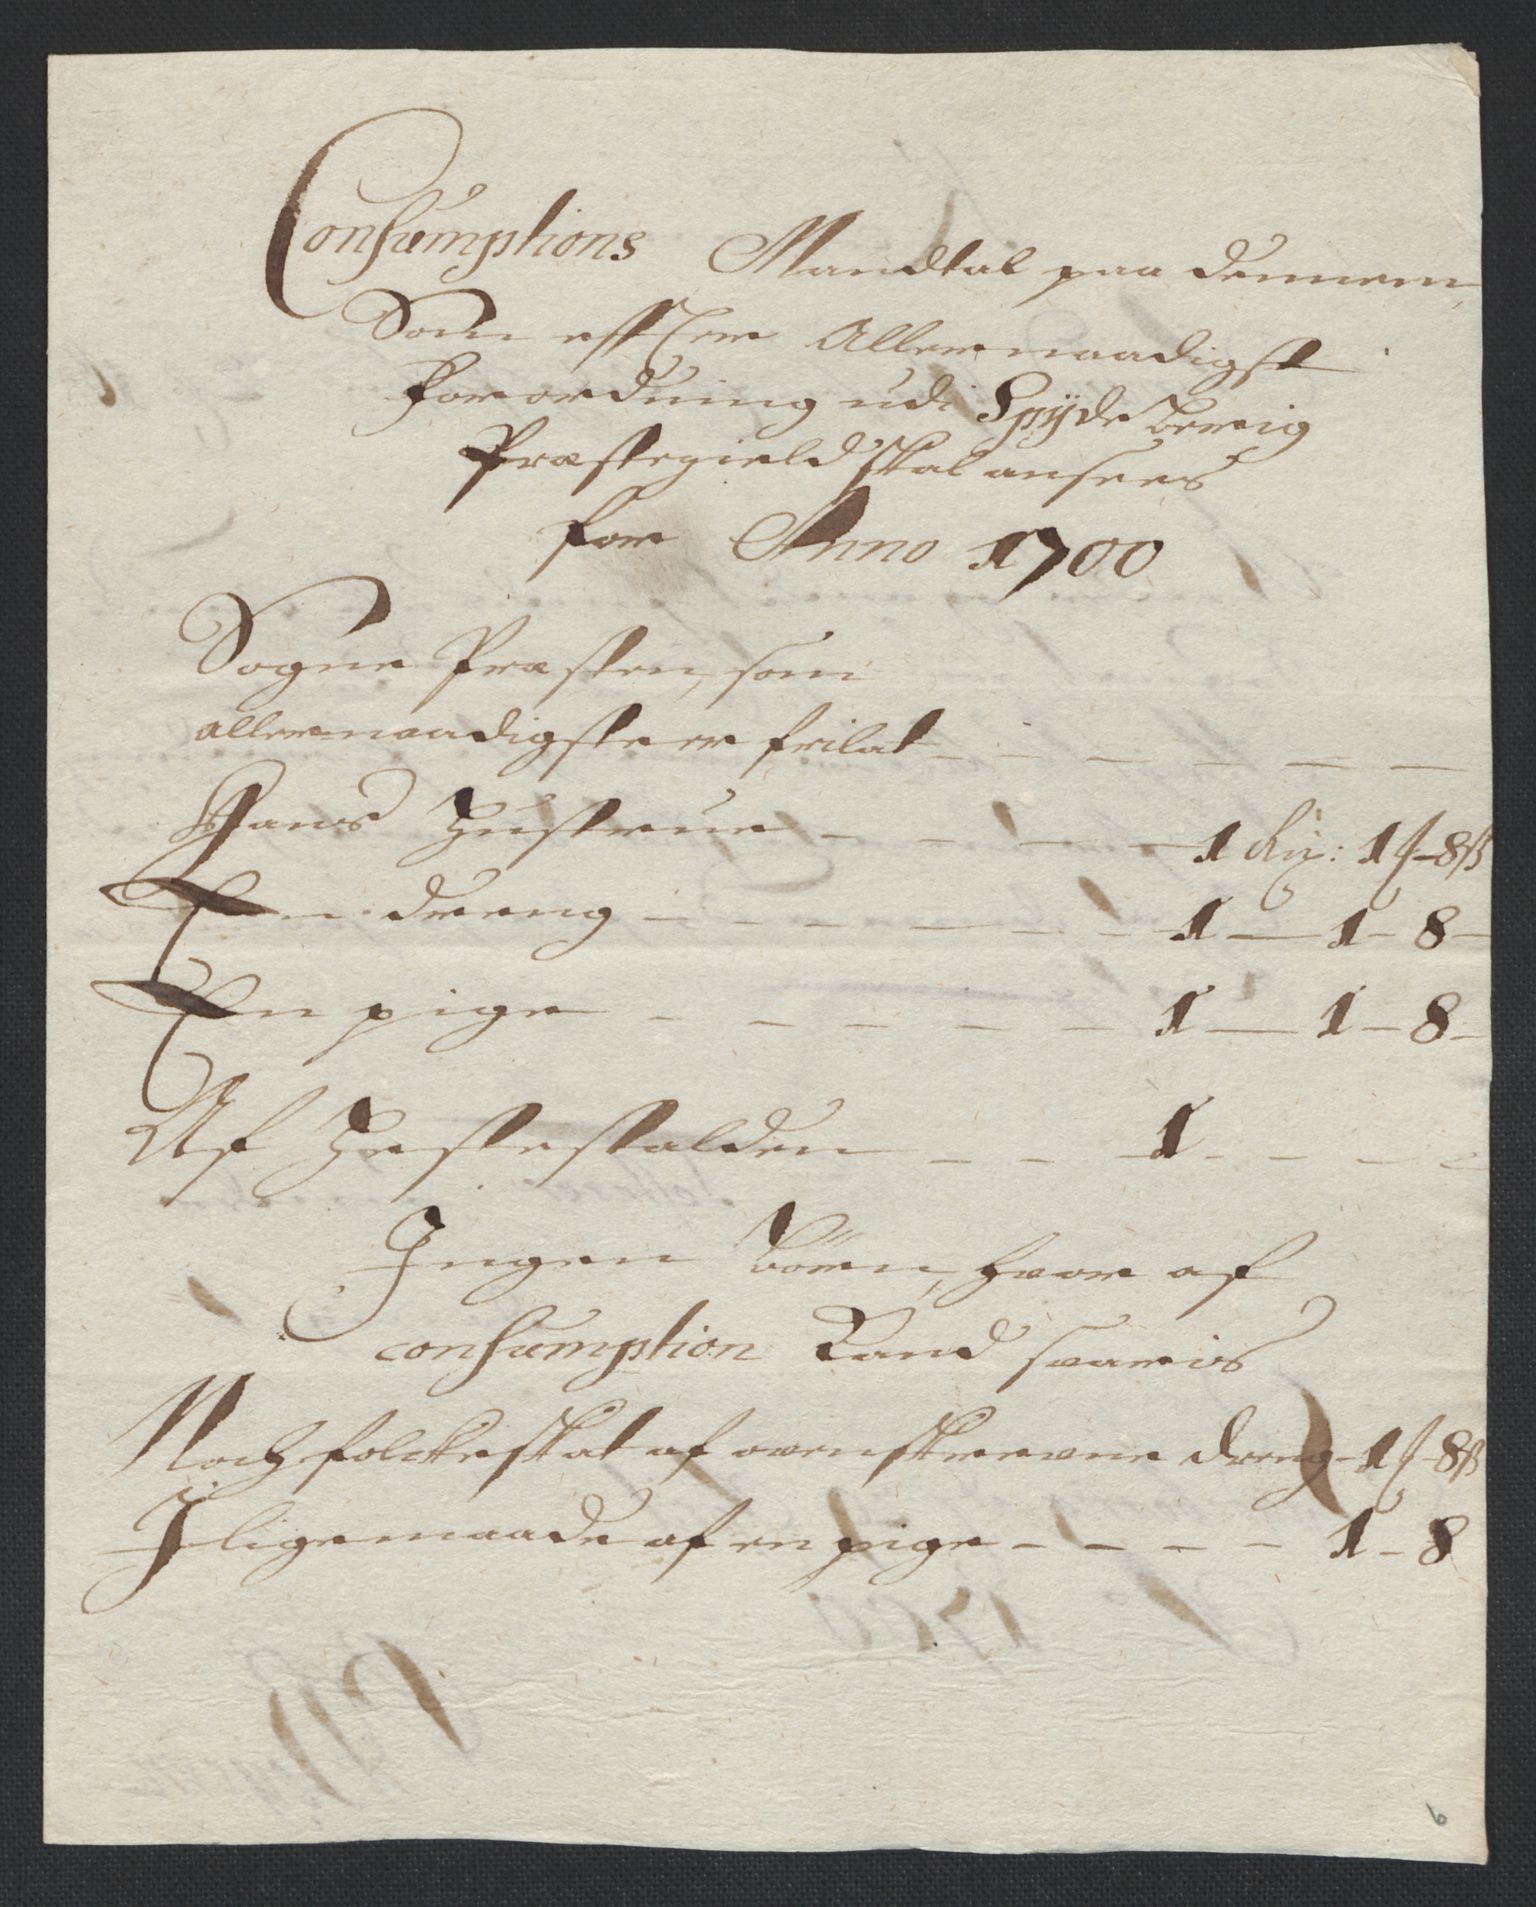 Consumptions Mandtal paa dennem,
Som effter Allernaadigst
forordning udi Spydeberig
Præstegield skal ansees
for Anno 1700
Sogne Præsten, som
allernaadigste er frilat
Hans Hustrue 1 1 8ß
En dreng 1 1 8
En pige 1 1 8
Af Hestestalden 1
Ingen Börn, hvor af
consumption Kand svaris
Noch folckeskat af ovenskrevne dreng 1 8ß
Iligemaade af en pige 1 8
6